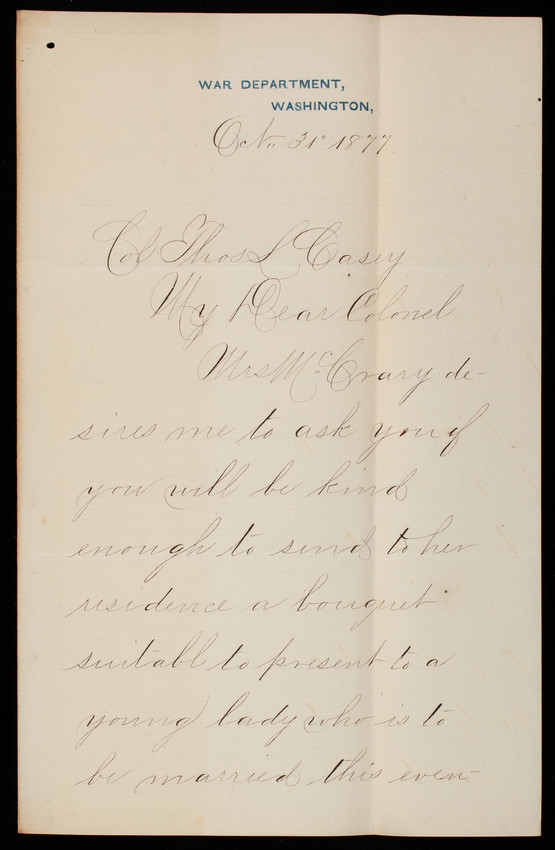 WAR DEPARTMENT,
WASHINGTON,
Oct. 31" 1877
Col Thos L Casey
My Dear Colonel
Mrs McCrary de-
sires me to ask you if
you will be kind
enough to send to her
residence a bouquet
suitabl to present to a
young lady who is to
be married this even-